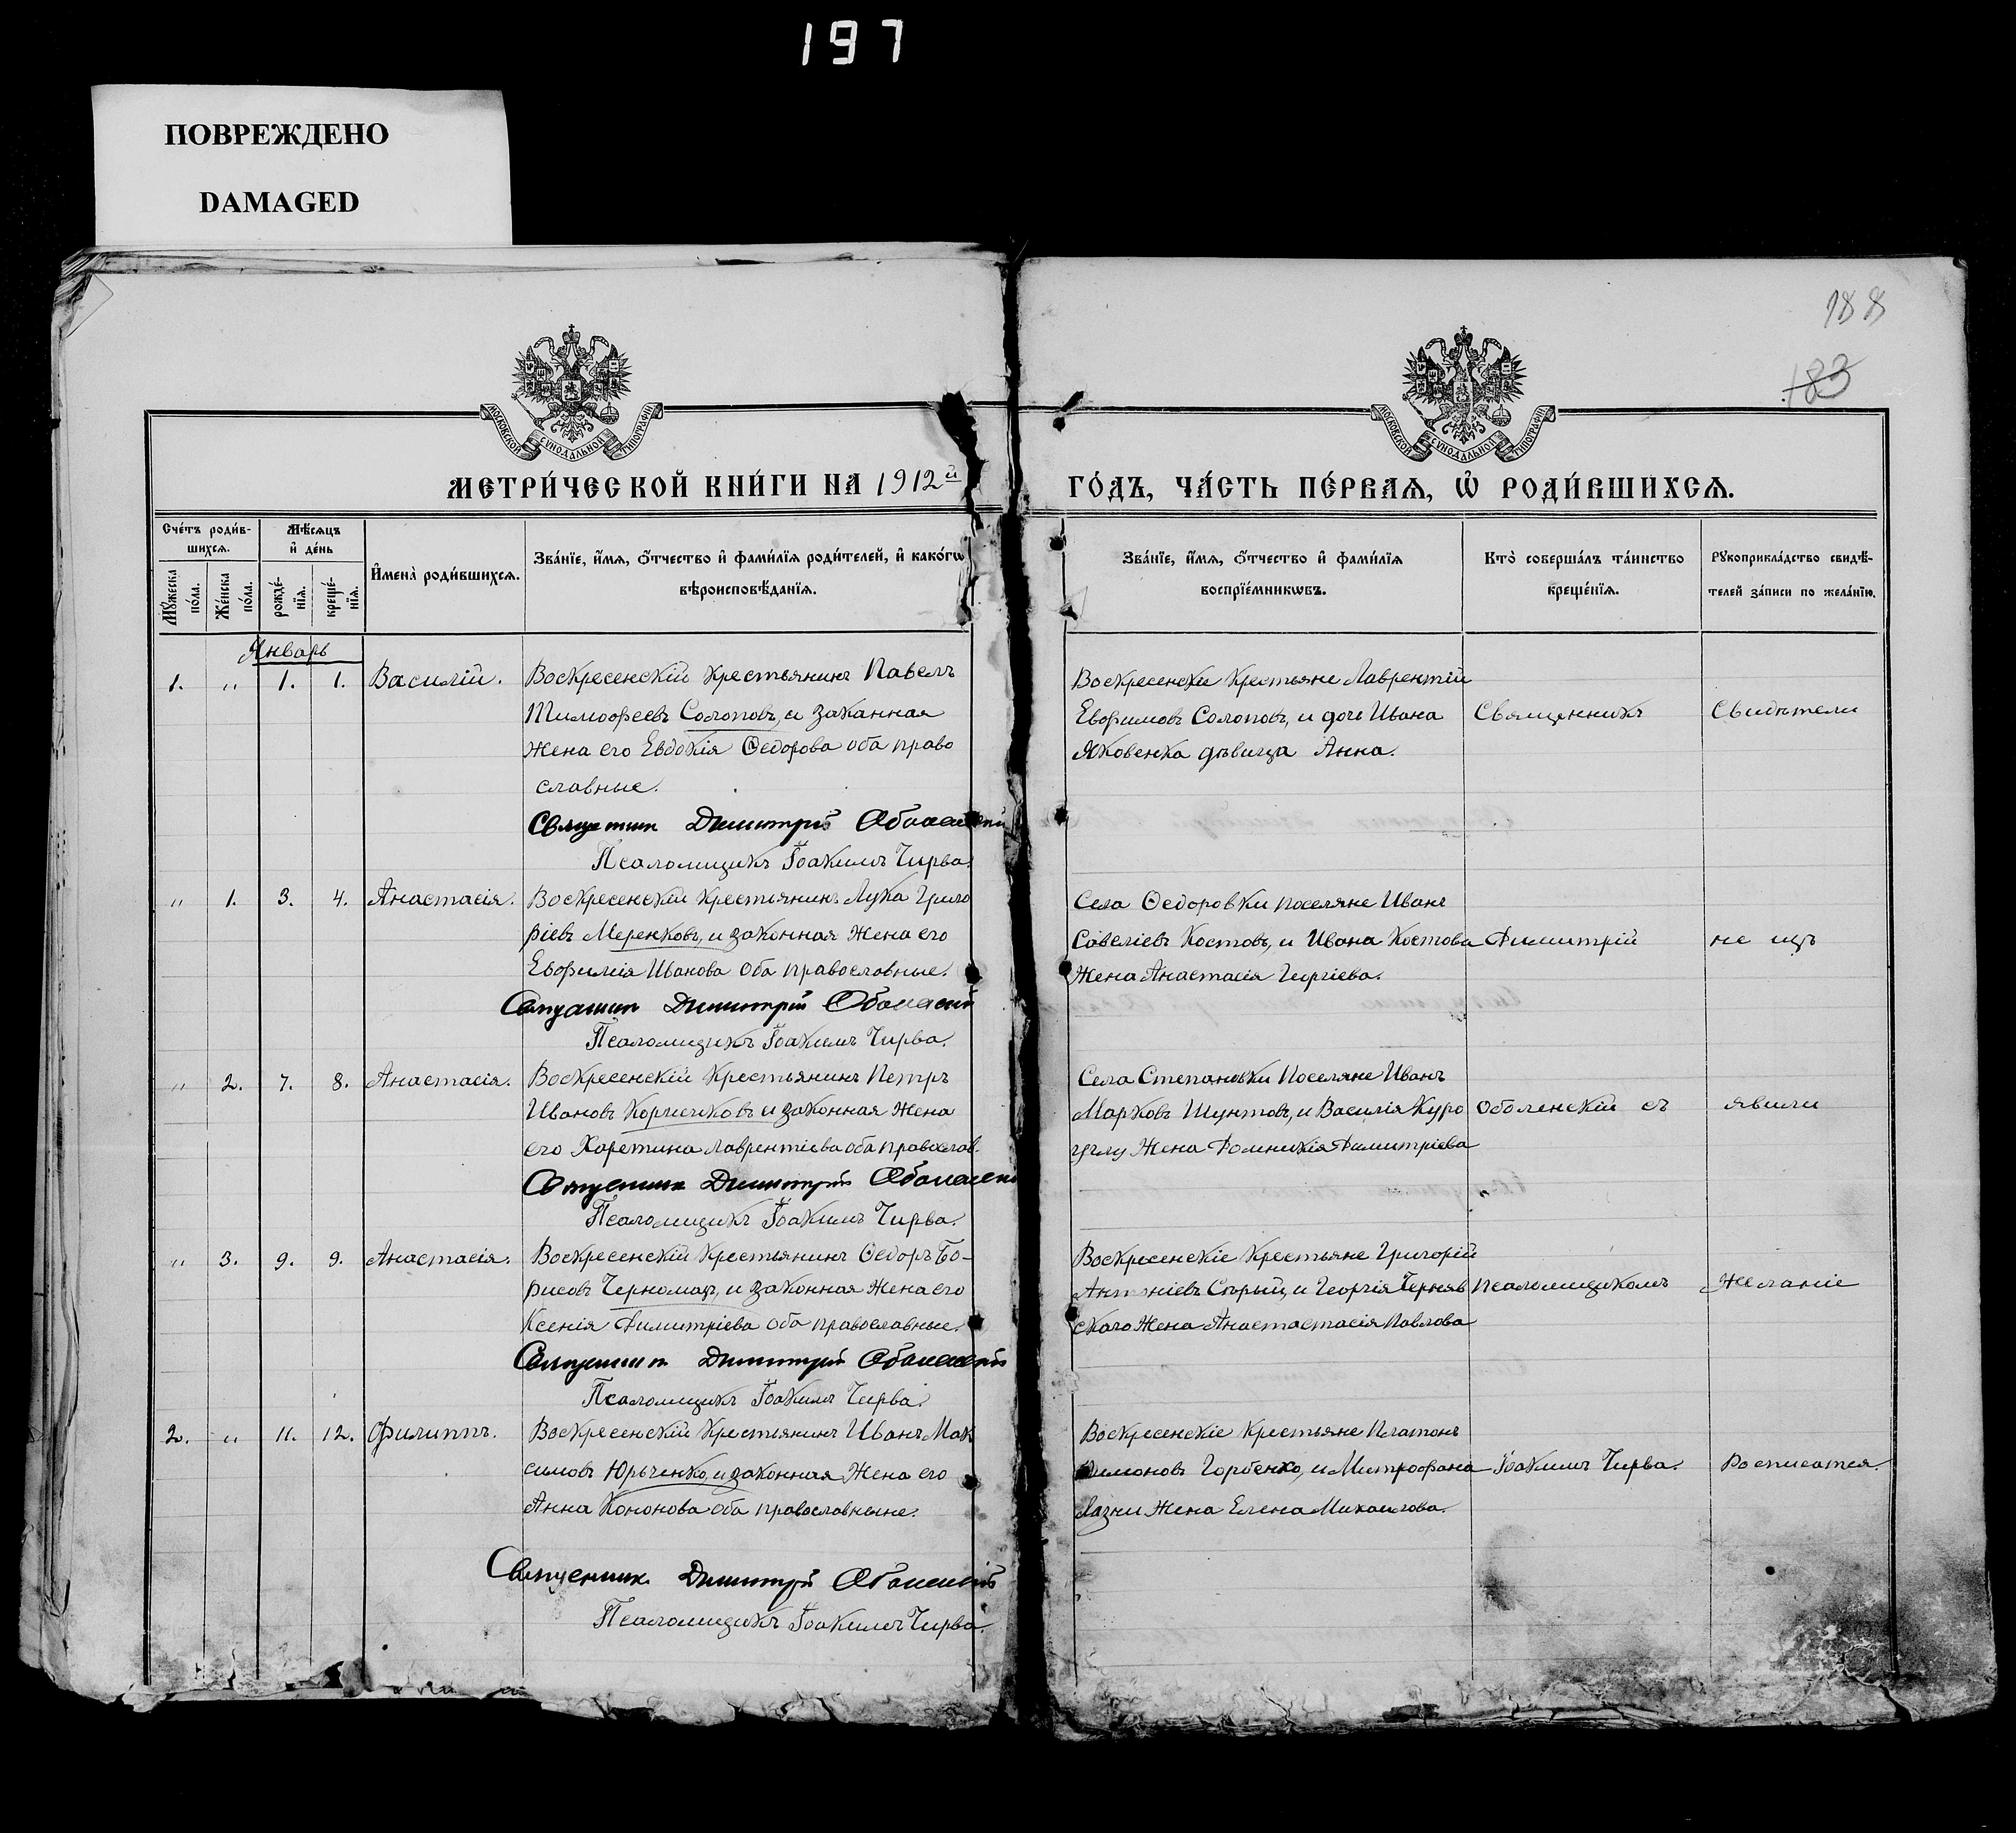 197
ПОВРЕЖДЕНО
DAMAGED
188
183
МОСКОВСКОЙ СѴНОДАЛЬНОЙ ТИПОГРАФІИ
МОСКОВСКОЙ СѴНОДАЛЬНОЙ ТИПОГРАФІИ
МЕТРИ́ЧЕСКОЙ КНИ́ГИ НА 1912й
ГО́ДЪ, ЧА́СТЬ ПЕ́РВАѦ, Ѡ РОДИ́ВШИХСѦ.
Сче́тъ роди́в-
шихсѧ.
Мꙋ́жеска по́ла.
Же́нска по́ла.
Мѣ́сѧцъ
и҆ де́нь
рожде́-
нїѧ.
креще́-
нїѧ.
И҆мена̀ роди́вшихсѧ.
Зва́нїе, и҆́мѧ, о҆́тчество и҆ фами́лїѧ роди́телей, и҆ како́гѡ
вѣроисповѣ́данїѧ.
Зва́нїе, и҆́мѧ, о҆́тчество и҆ фами́лїѧ
воспрїе́мникѡвъ.
Кто̀ соверша́лъ та́инство
креще́нїѧ.
Рꙋкоприкла́дство свидѣ́-
телей за́писи по жела́нїю.
Январь
1. " 1. 1. Василій. Воскресенскій крестьянинъ Павелъ
Тимофеевъ Солоповъ, и законная
жена его Евдокія Ѳедорова оба право
славные.
Священник Димитрій Оболенскій
Псаломщикъ Іоакимъ Чирва.
Воскресенскіе крестьяне Лаврентій
Евфимовъ Солоповъ, и дочь Ивана
Яковенка дѣвица Анна.
Священникъ
Свидѣтели
" 1. 3. 4. Анастасія. Воскресенскій крестьянинъ Лука Григо
ріевъ Меренковъ, и законная жена его
Евфимія Иванова оба православные.
Священник Димитрій Оболенскій
Псаломщикъ Іоакимъ Чирва.
Села Ѳедоровки поселяне Иванъ
Савеліевъ Костовъ, и Ивана Костова
жена Анастасія Георгіева.
Димитрій
не изъ
" 2. 7. 8. Анастасія. Воскресенскій крестьянинъ Петръ
Ивановъ и законная жена
его Харетина Лаврентіева оба православ.
Священник Димитрій Оболенскій
Псаломщикъ Іоакимъ Чирва.
Села Степановки поселяне Иванъ
Марковъ Шунтовъ, и Василія Куро
жена Домникія Димитріева
Оболенскій съ
явили
" 3. 9. 9. Анастасія. Воскресенскій крестьянинъ Ѳедоръ Бо-
рисовъ Черномазъ, и законная жена его
Ксенія Димитріева оба православные.
Священник Димитрій Оболенскій
Псаломщикъ Іоакимъ Чирва.
Воскресенскіе крестьяне Григорій
Антоніевъ Сѣрый, и Георгія Черняв
скаго жена Анастастасія Павлова
псаломщикомъ
желаніе
2. " 11. 12. Филиппъ. Воскресенскій крестьянинъ Иванъ Мак
симовъ Юрьченко, и законная жена его
Анна Кононова оба православныне.
Священник Димитрій Оболенскій
Псаломщикъ Іоакимъ Чирва.
Воскресенскіе крестьяне Платонъ
Горбенко, и Митрофана
Лазни жена Елена Михаилова.
Іоакимъ Чирва.
Росписатся.